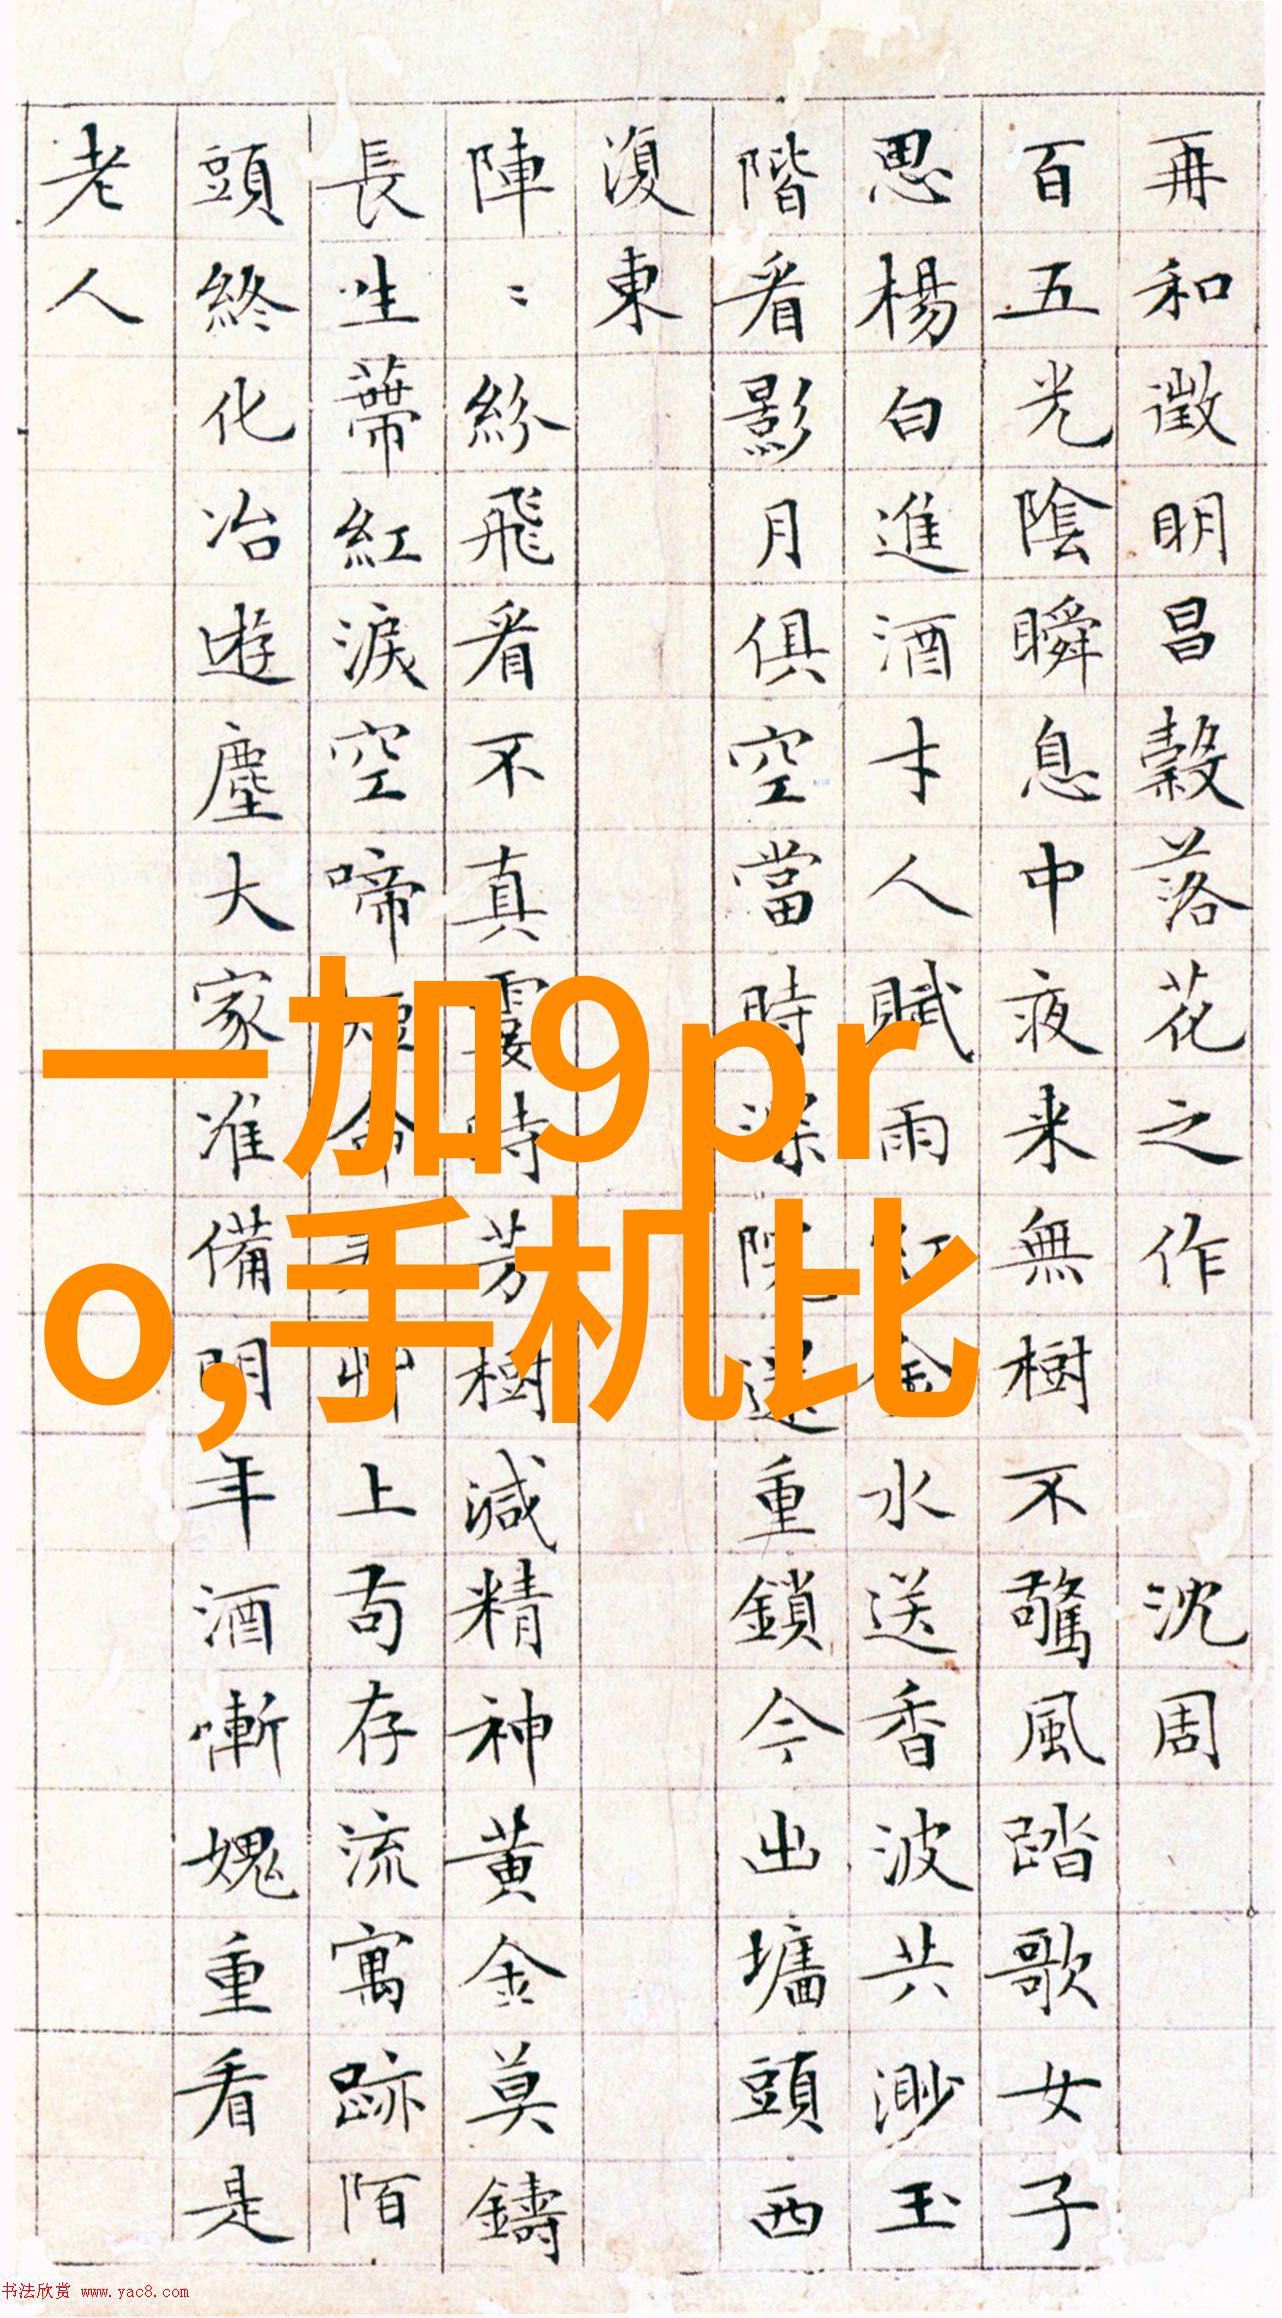 再和徵明昌穀落花之作 沈周
百五光陰瞬息中夜来無樹不驚風踏歌女子
思楊白進酒才人賦雨紅金水送香波共渺玉
階看影月俱空當時深院還重鎖今出墻頭西
復東
陣〻紛飛看不真霎時芳樹減精神黄金莫鑄
長生蒂紅淚空啼短命春艸上苟存流寓跡陌
頭終化冶遊塵大家准備明年酒慚媿重看是
老人
一加9pr
o,手机比
书法欣赏 www.yac8.com